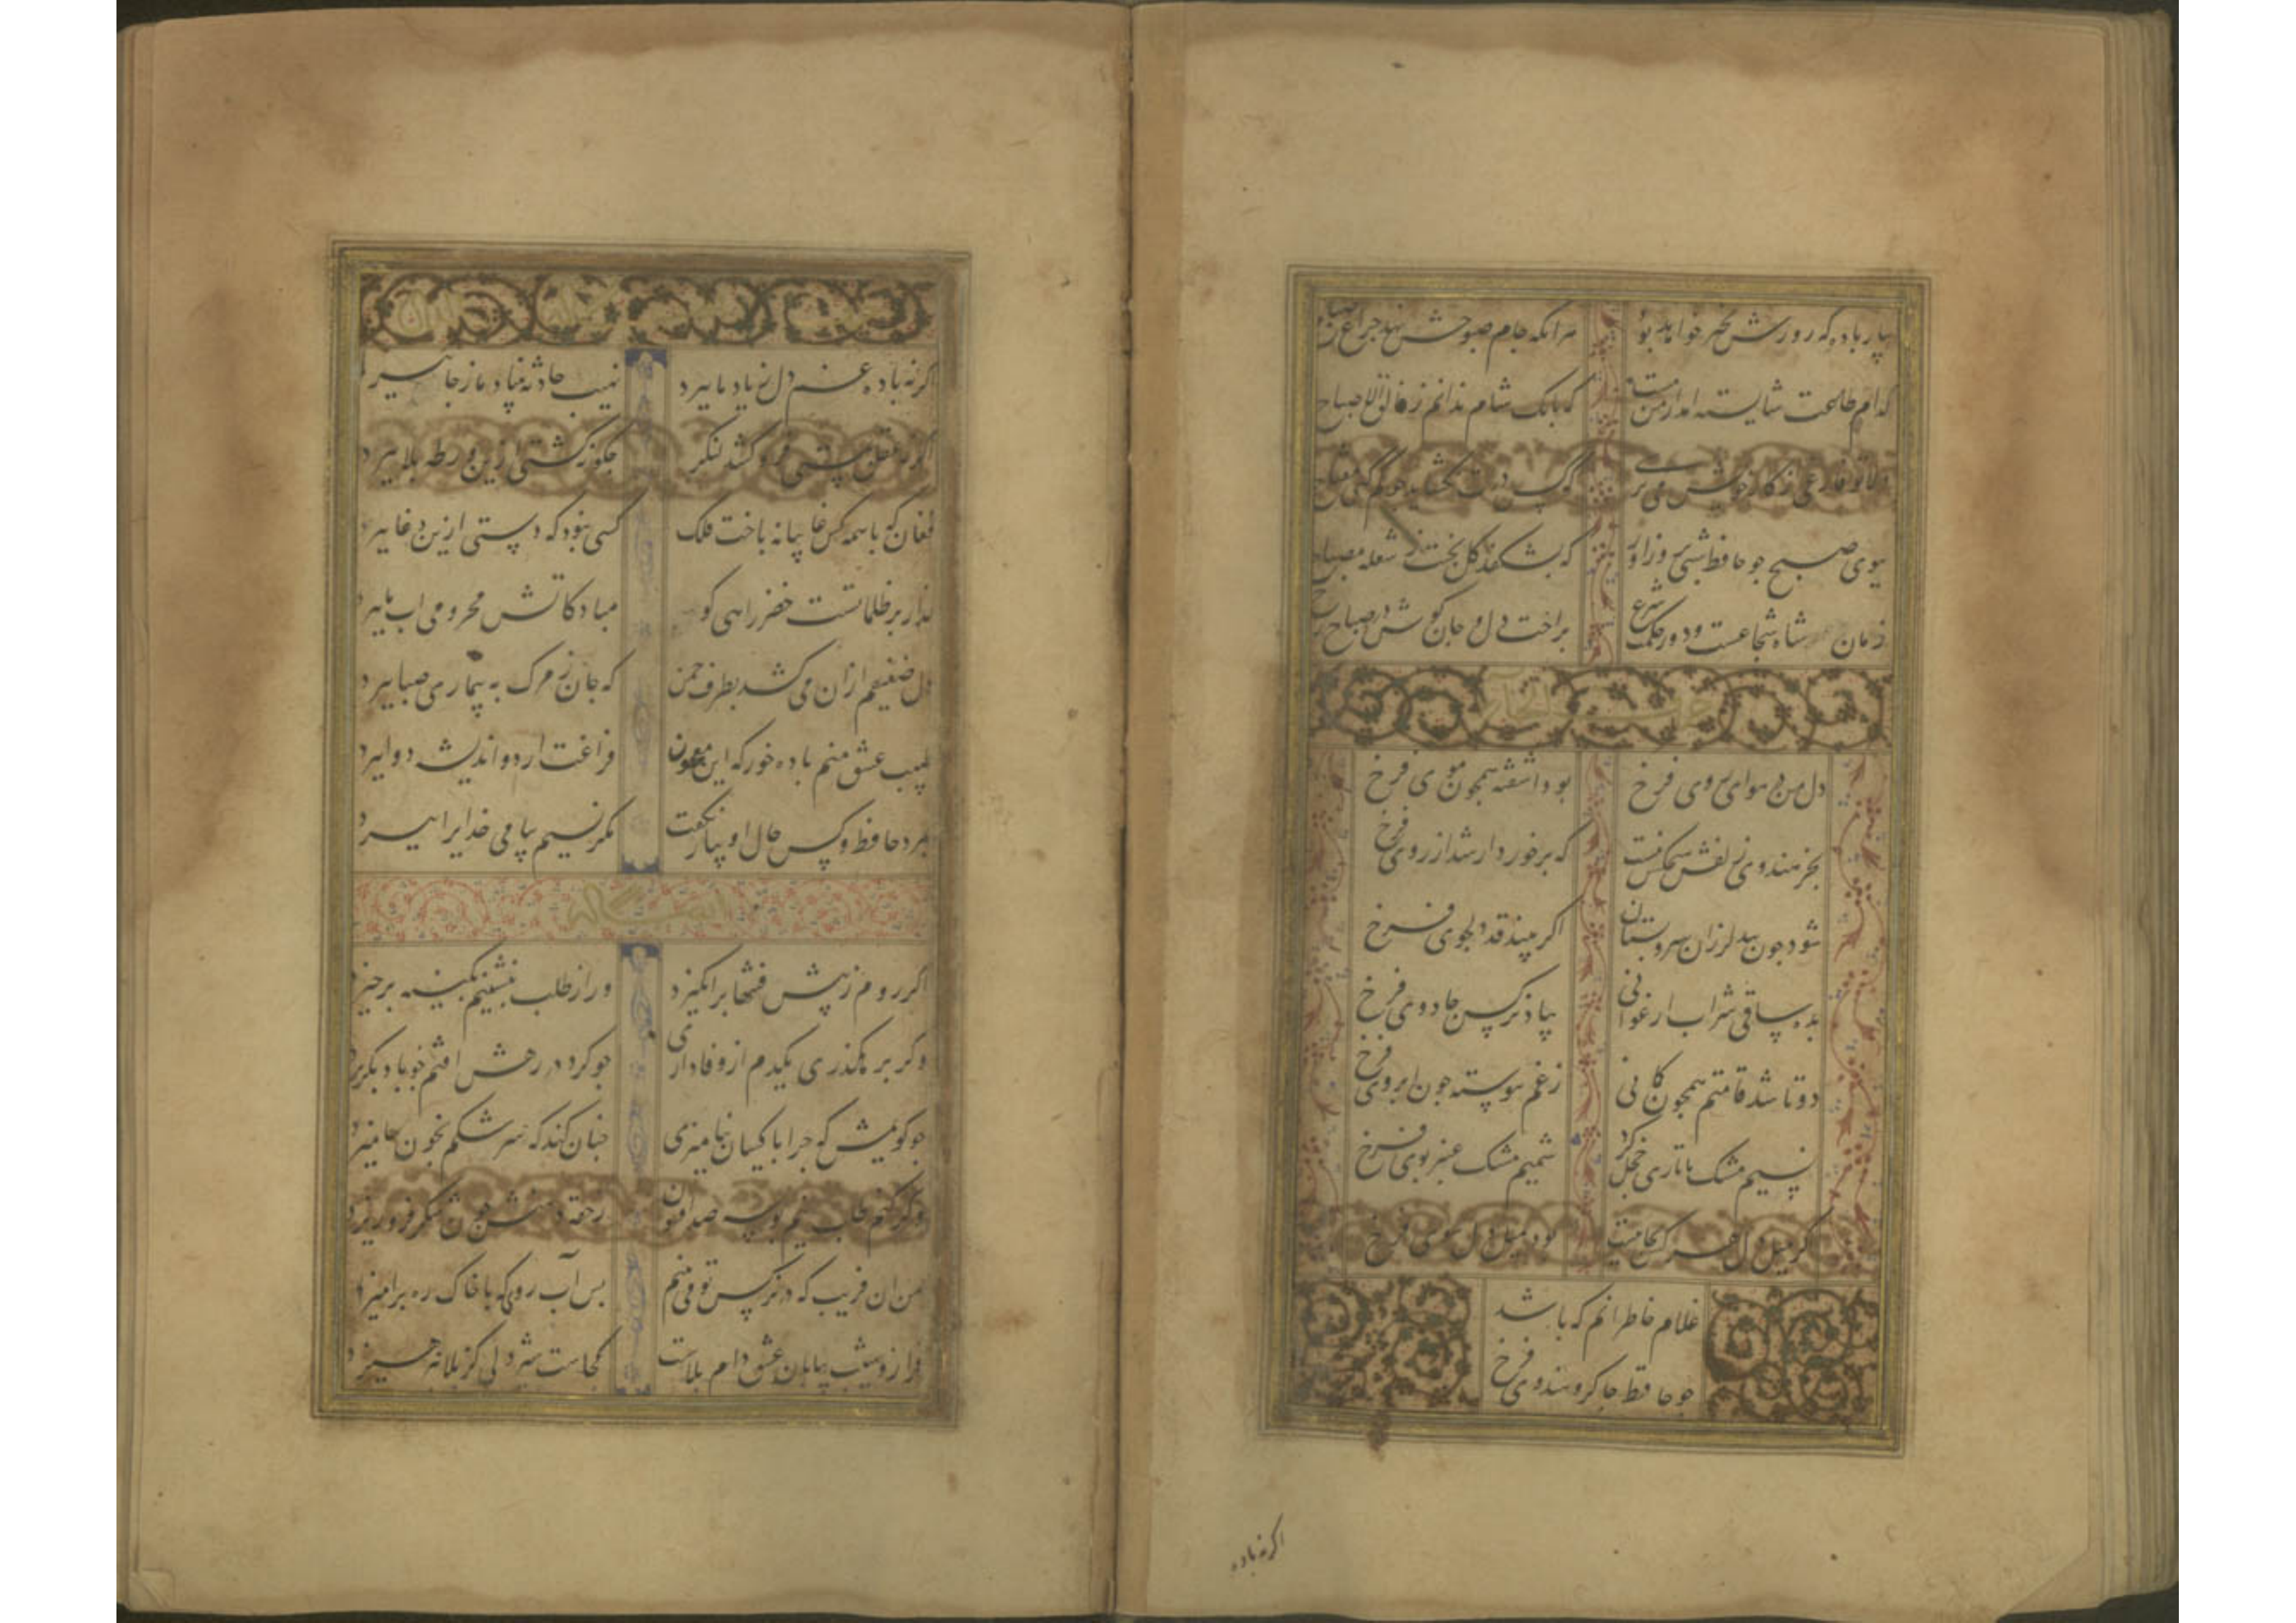 بیار باده که روزش بخیر خواهد بود هر آنکه جام صبوحش نهد چراغ صباح
کدام طاعت شایسته آید از من مست که بانگ شام ندانم ز فالق الاصباح
دلا تو فارغی از کار خویش می ترسم که کس درت نگشاید چو گم کنی مفتاح
ببوی صبح چو حافظ شبی بروز آور که بشکفد گل بختت ز شعله مصباح
زمان شاه شجاعست و دور حکمت شرع براحت دل و جان کوش در صباح
حرف الخاء
دل من در هوای روی فرخ بود آشفته همچون موی فرخ
بجز هندوی زلفش هیچکس نیست که برخوردار شد از روی فرخ
شود چون بید لرزان سرو بستان اگر بیند قد دلجوی فرخ
بده ساقی شراب ارغوانی بیاد نرگس جادوی فرخ
دوتا شد قامتم همچون کمانی ز غم پیوسته چون ابروی فرخ
نسیم مشک تاتاری خجل کرد شمیم مشک عنبر بوی فرخ
گر میل دل هر کس بجائیست بود میل دل من سوی فرخ
غلام خاطر آنم که باشد
چو حافظ چاکر و هندوی فرخ
اگر نه باده
اگر نه باده غم دل ز یاد ما ببرد نهیب حادثه بنیاد ما ز جا ببرد
اگر نه عقل بمستی فرو کشد لنگر چگونه کشتی ازین ورطه بلا ببرد
فغان که با همه کس غایبانه باخت فلک کسی نبود که دستی ازین دغا ببرد
گذار بر ظلماتست خضر راهی کو مباد کاتش محرومی آب ما ببرد
دل ضعیفم از آن می کشد بطرف چمن که جان ز مرگ به بیماری صبا ببرد
طبیب عشق منم باده خور که این معجون فراغت آرد و اندیشه دوا ببرد
بمرد حافظ و کس حال او بیار نگفت مگر نسیم پیامی خدایرا ببرد
اگر روم ز پیش فتنها برانگیزد ور از طلب بنشینم بکینه برخیزد
وگر بر هگذری یکدم از وفاداری چو گرد در رهش افتم چو باد بگریزد
چو گویمش که چرا با کسان بیامیزی چنان کند که سرشکم بخون بیامیزد
وگر کنم طلب نیم بوسه صد افسون ز حقه دهنش چون شکر فرو ریزد
من آن فریب که در نرگس تو می بینم بس آب روی که با خاک ره برآمیزد
فراز و شیب بیابان عشق دام بلاست کجاست شیردلی کز بلا نپرهیزد